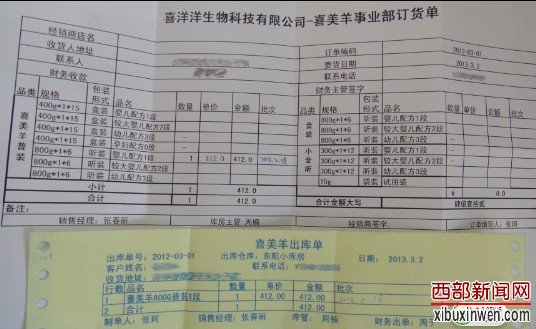 喜洋洋生物科技有限公司-喜美羊事业部订货单
经销商店名 订单编码 2013-03-01
收货人地址 要货日期 2013.3.2
联系人 联系电话
财务收款 财务主管签字
品类 规格 包装形式 品名 数量 单价 金额 批次 品类 规格 包装形式 品名 数量 单价 金额 批次
喜美羊普装 金装 小金听
400g*1*15 盒装 婴儿配方1段 800g*1*6 听装 婴儿配方1段
400g*1*15 盒装 较大婴儿配方2段 800g*1*6 听装 较大婴儿配方2段
400g*1*15 盒装 幼儿配方3段 800g*1*6 听装 幼儿配方3段
400g*1*15 盒装 孕妇配方0段 300g*1*12 听装 婴儿配方1段
800g*1*6 听装 婴儿配方1段 1 412.0 412.0 300g*1*12 听装 较大婴儿配方2段
800g*1*6 听装 较大婴儿配方2段 300g*1*12 听装 幼儿配方3段
800g*1*6 听装 幼儿配方3段 15g 袋装 试用装
小计 1 412.0 0.0
合计 1 412.0 合计金额大写 肆佰壹拾贰
备注:
销售经理: 张春丽 库房主管: 周楠 经销商签字: 订单填写人: 张珂
喜美羊出库单
出库单号: 2012-03-01 出库仓库: 东航小库房 日期: 2013.3.2
客户姓名: 联系电话:
收货地址:
行数 品名 数量 单价 金额 批次
1 喜美羊800G普装1段 1 412.00 412.00
2 合计 1 412.00
制单人: 张珂 销售经理: 张春丽 库管: 周楠 财务: 出库: 周
西部新闻网
xibuxinwen.com